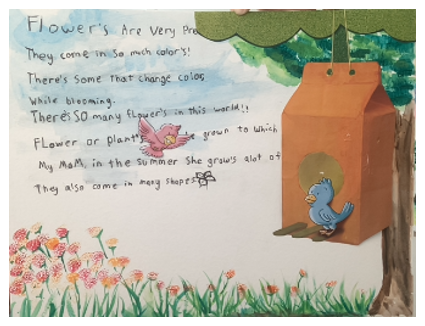 Flower's Are Very
They come in so much color's!
There's some that change color
While blooming.
There's SO many flower's in this world!!
Flower or plant grown to which
My Mom, in the summer she grow's alot of
They also come in many shapes